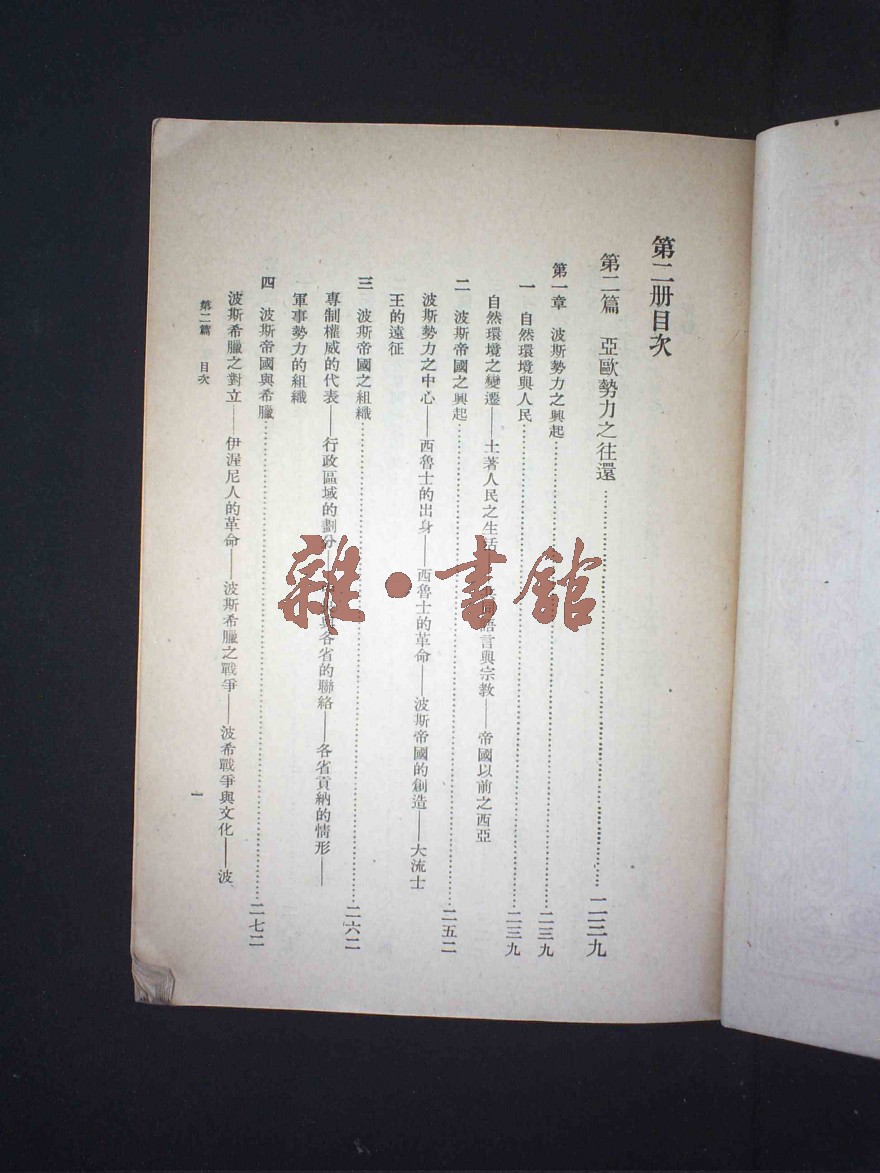 第二册目次
第二篇 亞歐勢力之往還……二三九
第一章 波斯勢力之興起……二三九
一 自然環境與人民……二三九
自然環境之變遷——土著人民之生活 語言與宗教——帝國以前之西亞
二 波斯帝國之興起……二五二
波斯勢力之中心——西魯士的出身——西魯士的革命——波斯帝國的創造——大流士
王的遠征
三 波斯帝國之組織……二六二
專制權威的代表——行政區域的劃分 與各省的聯絡——各省貢納的情形——
軍事勢力的組織
四 波斯帝國與希臘……二七二
波斯希臘之對立——伊渥尼人的革命——波斯希臘之戰爭——波希戰爭與文化——波
第二篇 目次
一
雜·書館